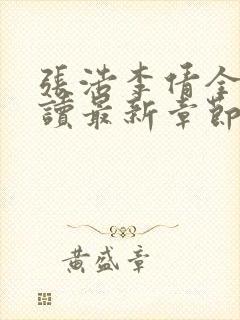 張浩李倩全
讀最新章節
黃盛章